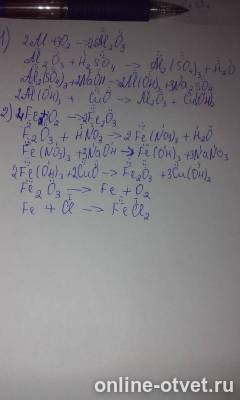 1) 2Al + 3O₂ → 2Al₂O₃
Al₂O₃ + H₂SO₄ → Al₂(SO₄)₃ + H₂O
Al₂(SO₄)₃ + 2NaOH → 2Al(OH)₃ + 3Na₂SO₄
2Al(OH)₃ + CuO → Al₂O₃ + Cu(OH)₂
2) 4Fe + O₂ → 2Fe₂O₃
Fe₂O₃ + HNO₃ → 2Fe(NO₃)₃ + H₂O
Fe(NO₃)₃ + 3NaOH → Fe(OH)₃ + 3NaNO₃
2Fe(OH)₃ + 2CuO → Fe₂O₃ + 3Cu(OH)₂
Fe₂O₃ → Fe + O₂
Fe + Cl → FeCl₂
online-otvet.ru